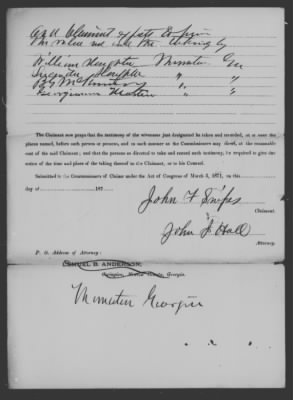 And Claimant expects to prove
the value and the taking by
William Slaughter Winston Ga
Slaughter " "
" "
" "
The Claimant now prays that the testimony of the witnesses just designated be taken and recorded, at or near the
places named, before such person or persons, and in such manner as the Commissioners may direct, at the reasonable
cost of the said Claimant, and that the persons so directed to take and record such testimony, be required to give due
notice of the time and place of the taking thereof to the Claimant, or to his Counsel.
Submitted to the Commissioners of Claims under the Act of Congress of March 3, 1871, on this
day of 187
John F Snipes
Claimant.
John J. Hall
Attorney.
P. O. Address of Attorney:
SAMUEL B. ANDERSON,
County, Georgia.
Georgia